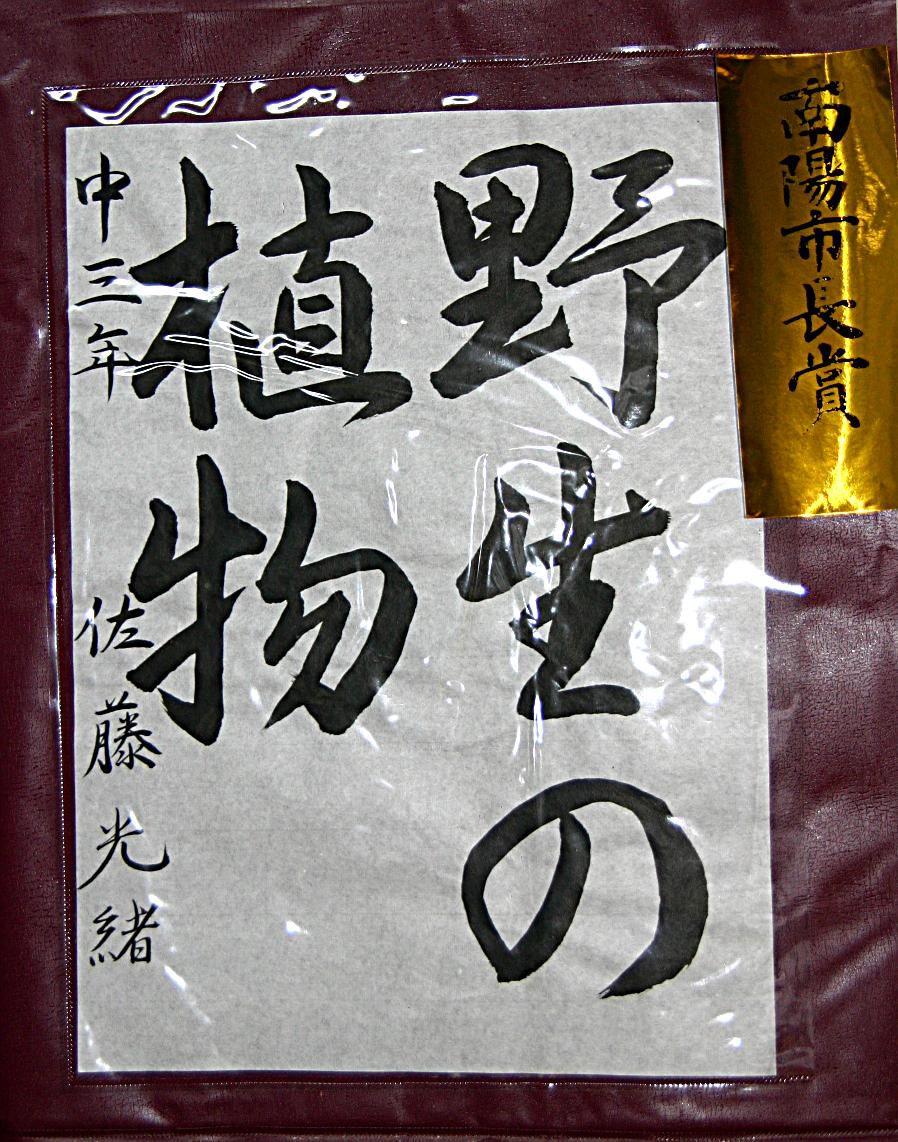 南陽市長賞
野生の
植物
中三年 佐藤光緒